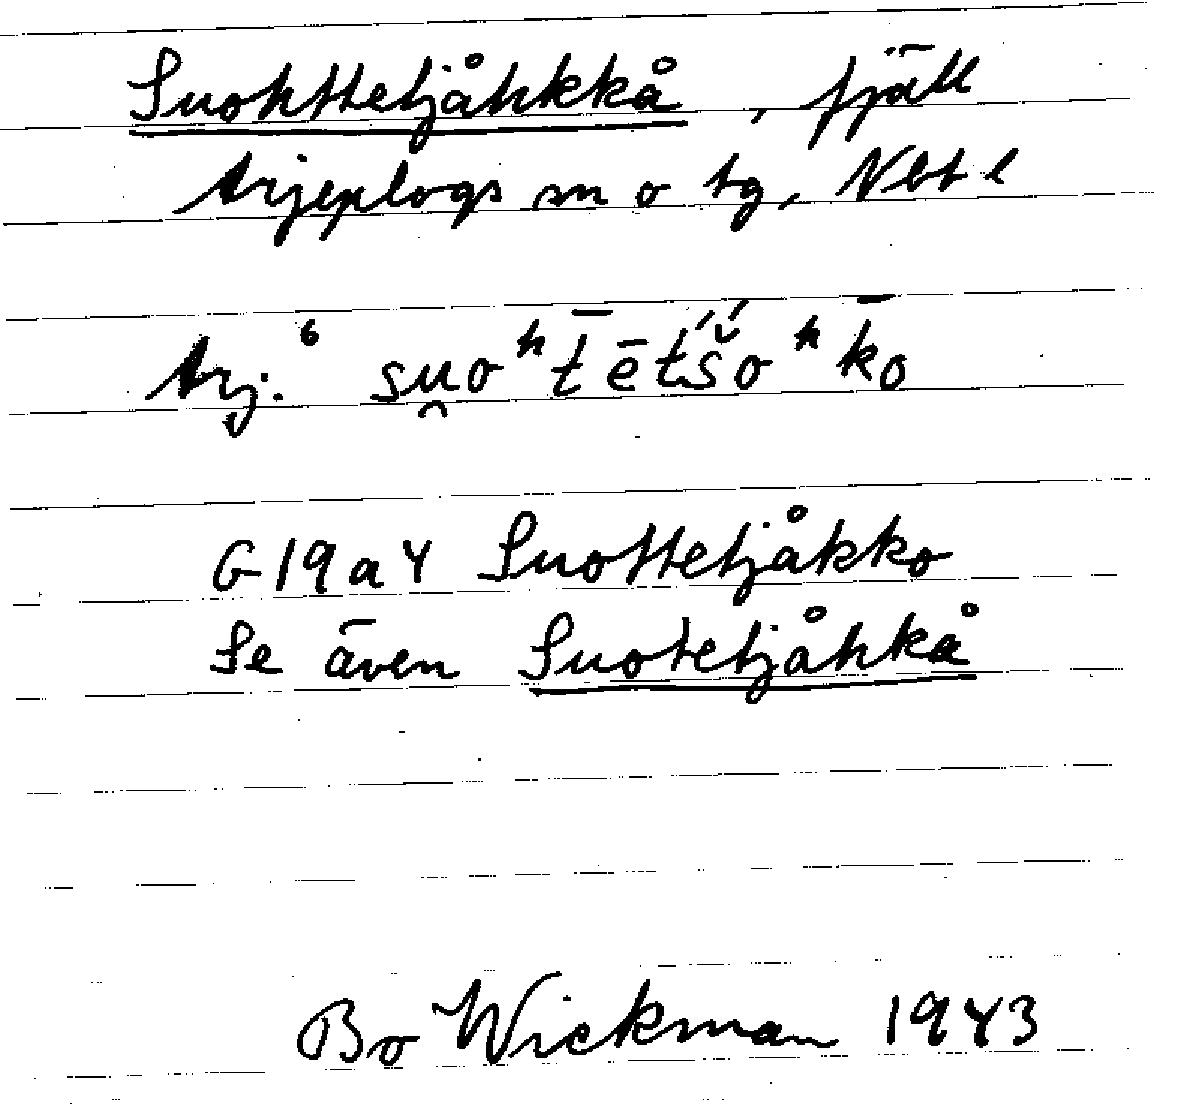 Suohttetjåhkkå, fjäll
Arjeplogs sn o tg, Nbt l
Arj.⁶ su̯oʰt̄ēt́š́oʰk̄o
G19a4 Suottetjåkko
Se även Suotetjåhkå
Bo Wickman 1943